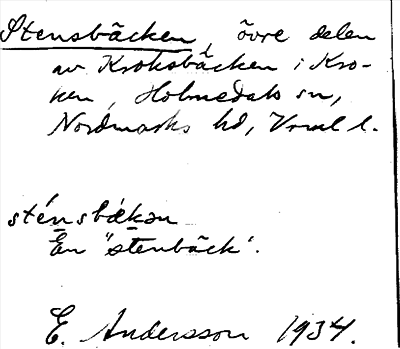 Stensbäcken, övre delen
av Kroksbäcken i Kro-
ken, Holmedals sn,
Nordmarks hd, Vrml l.
sténsbä́kən
En "stenbäck".
E. Andersson 1934.